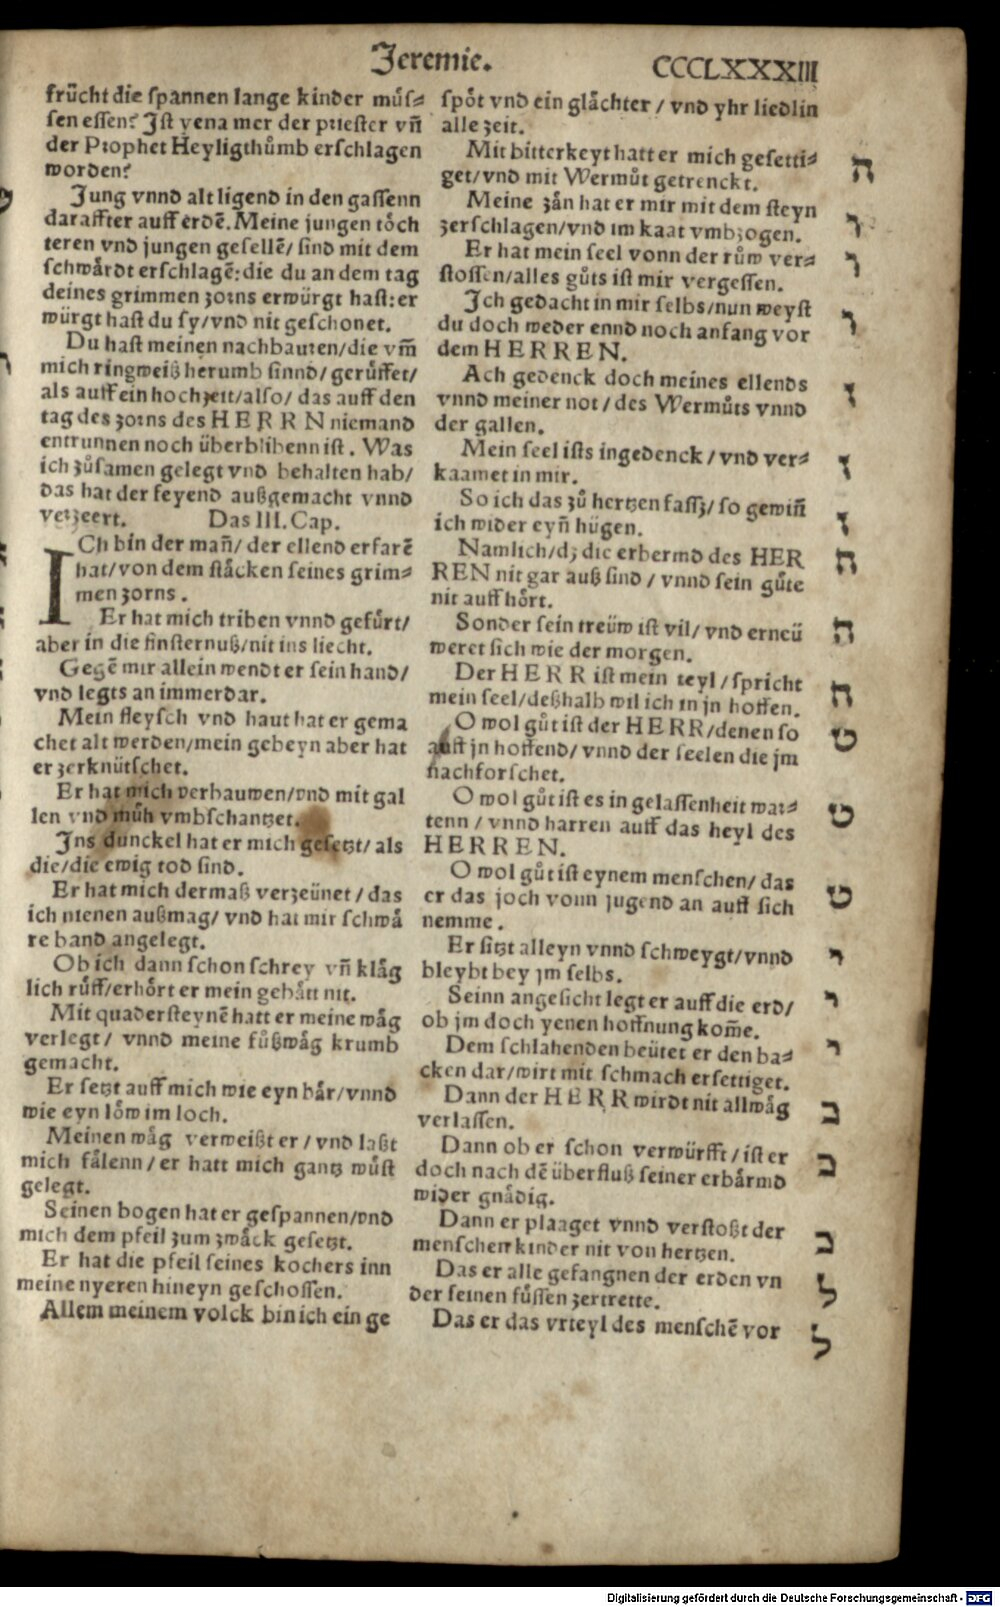 Jeremie.
CCCCLXXXIII
früchtdie spannen lange kinder müs⸗
sen essen? Jst yena mer der priester vñ
der Prophet Heyligthůmb erschlagen
worden?
Jung vnnd alt ligend in den gassenn
daraffter auff erdẽ. Meine jungen tôch
teren vnd jungen gesellẽ/ sind mit dem
schwårdt erschlagẽ: die du an dem tag
deines grimmen zorns erwürgt hast: er
würgt hast du sy/vnd nit geschonet.
Du hast meinen nachbauren/die vm̃
mich ringweiß herumb sinnd/ gerůffet/
als auff ein hochzeit/also/ das auff den
tag des zorns des HERRN niemand
entrunnen noch überblibenn ist. Was
ich zůsamen gelegt vnd behalten hab/
das hat der feyend außgemacht vnnd
verzeert. Das III. Cap.
ICh bin der mañ/ der ellend erfarẽ
hat/von dem ståcken seines grim⸗
men zorns.
Er hat mich triben vnnd gefůrt/
aber in die finsternuß/nit ins liecht.
Gegẽ mir allein wendt er sein hand/
vnd legts an immerdar.
Mein fleysch vnd haut hat er gema
chet alt werden/mein gebeyn aber hat
er zerknütschet.
Er hat mich verbauwen/vnd mit gal
len vnd můh vmbschantzet.
Jns dunckel hat er mich gesetzt/ als
die/die ewig tod sind.
Er hat mich dermaß verzeünet/das
ich nienen außmag/ vnd hat mir schwå
re band angelegt.
Ob ich dann schon schrey vñ klåg
lich růff/erhôrt er mein gebått nit.
Mit quadersteynẽ hatt er meine wåg
verlegt/ vnnd meine fůßwåg krumb
gemacht.
Er setzt auff mich wie eyn bår/vnnd
wie eyn lôw im loch.
Meinen wåg verweißt er/vnd laßt
mich fålenn/er hatt mich gantz wůst
gelegt.
Seinen bogen hat er gespannen/vnd
mich dem pfeil zum zwåck gesetzt.
Er hat die pfeil seines kochers inn
meine nyeren hineyn geschossen.
Allem meinem volck bin ich ein ge
spôt vnd ein glåchter/ vnd yhr liedlin
alle zeit.
Mit bitterkeyt hatt er mich gesetti⸗
get/vnd mit Wermůt getrenckt.
ה
Meine zån hat er mir mit dem steyn
zerschlagen/vnd im kaat vmbzogen.
ו
Er hat mein seel vonn der růw ver⸗
stossen/alles gůts ist mir vergessen.
ו
Jch gedacht in mir selbs/nun weyst
du doch weder ennd noch anfang vor
dem HERREN.
ו
Ach gedenck doch meines ellends
vnnd meiner not/des Wermůts vnnd
der gallen.
ז
Mein seel ists ingedenck/vnd ver⸗
kaamet in mir.
ז
So ich das zů hertzen fassz/ so gewiñ
ich wider eyñ hügen.
ז
Namlich/dz die erbermd des HER
REN nit gar auß sind/vnnd sein gůte
nit auff hôrt.
ח
Sonder sein treüw ist vil/vnd erneü
weret sich wie der morgen.
ח
Der HERR ist mein teyl/spricht
mein seel/deßhalb wil ich in jn hoffen.
ח
O wol gůt ist der HERR/denen so
auff jn hoffend/vnnd der seelen die jm
nachforschet.
ט
O wol gůt ist es in gelassenheit war⸗
tenn/vnnd harren auff das heyl des
HERREN.
ט
O wol gůt ist eynem menschen/das
er das joch vonn jugend an auff sich
nemme.
ט
Er sitzt alleyn vnnd schweygt/vnnd
bleybt bey jm selbs.
י
Seinn angesicht legt er auff die erd/
ob jm doch yenen hoffnung kom̃e.
י
Dem schlahenden beütet er den ba⸗
cken dar/wirt mit schmach ersettiget.
י
Dann der HERR wirdt nit allwåg
verlassen.
כ
Dann ob er schon verwürfft/ist er
doch nach dẽ überfluß seiner erbårmd
wider gnådig.
כ
Dann er plaaget vnnd verstoßt der
menschen kinder nit von hertzen.
כ
Das er alle gefangnen der erden vn
der seinen fůssen zertrette.
ל
Das er das vrteyl des menschẽ vor
ל
Digitalisierung gefördert durch die Deutsche Forschungsgemeinschaft - DFG